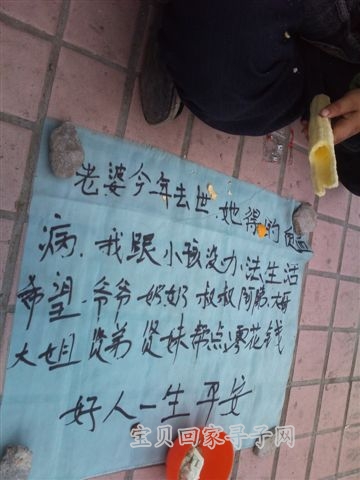 老婆今年去世.她得的
病.我跟小孩没力.法生活
希望.爷爷奶奶叔叔阿姨.大哥
大姐贤弟贤妹帮点零花钱
好人一生平安
宝贝回家寻子网